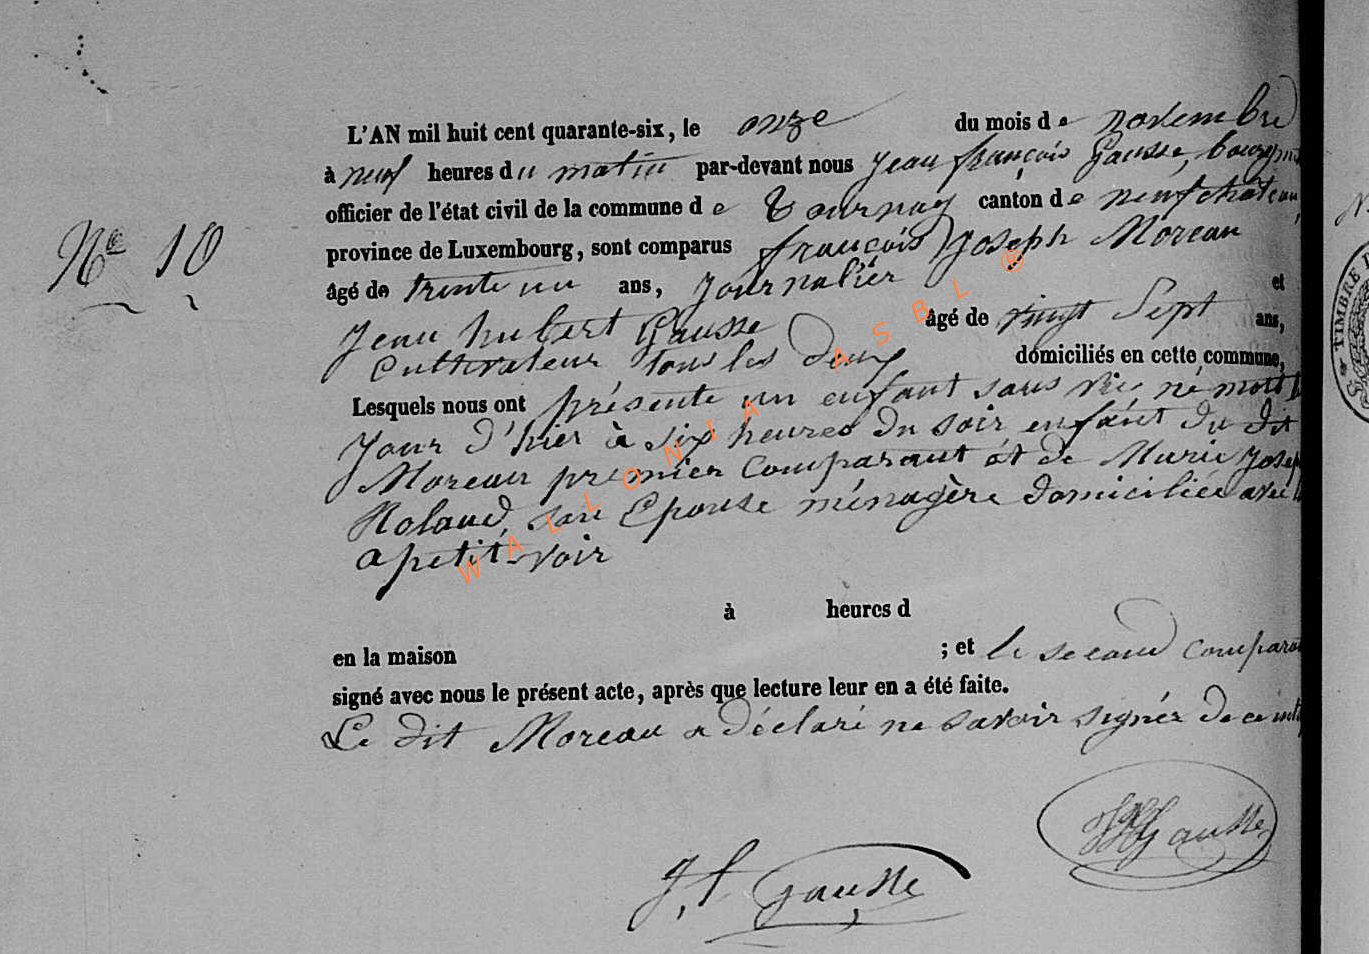 L'AN mil huit cent quarante-six, le onze du mois de novembre
à neuf heures du matin par-devant nous Jean françois Gausse, bourgm
officier de l'état civil de la commune de Tournay canton de neufchateau,
province de Luxembourg, sont comparus françois Joseph Moreau
Nº 10
âgé de trente un ans, Journalier et
Jean hubert Gausse âgé de vingt Sept ans,
Cultivateur tous les deux domiciliés en cette commune,
Lesquels nous ont présenté un enfant sans vie, né mort l
jour d'hier à six heures du soir enfant du dit
Moreau premier Comparant et de Marie Josep
Roland, son Epouse ménagère domiciliée avec l
a petit-voir
à heures d
en la maison ; et le second Compara
signé avec nous le présent acte, après que lecture leur en a été faite.
Le dit Moreau a déclaré ne savoir signér de ce
Gausse
J. f Gausse
TIMBRE
WALLONIA ASBL ®